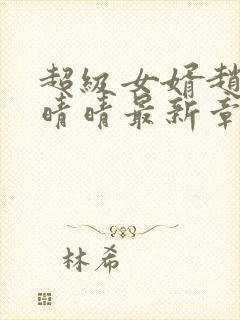 超级女婿趙
晴晴最新章
林希